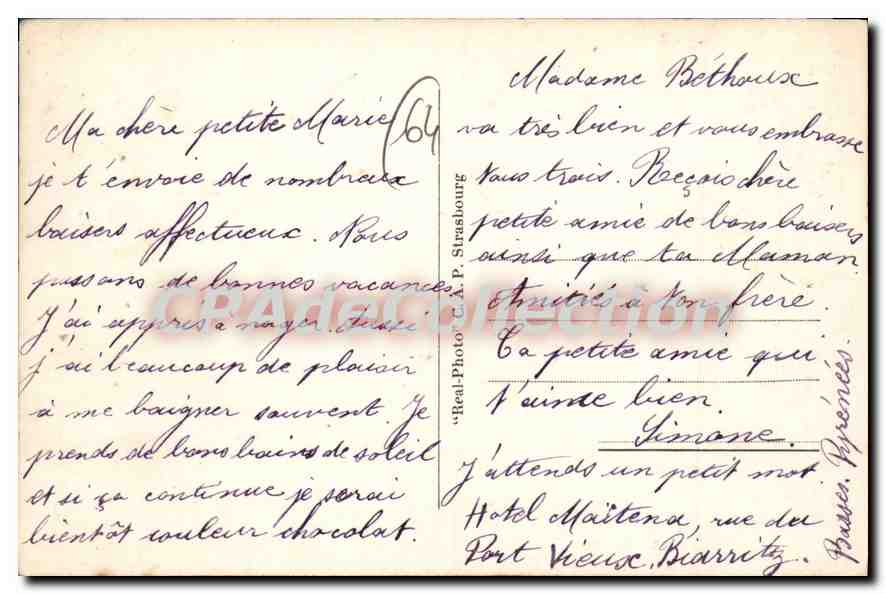 Ma chère petite Marie
je t'envoie de nombreux
baisers affectueux. Nous
passons de bonnes vacances.
J'ai appris à nager. Aussi
j'ai beaucoup de plaisir
à me baigner souvent. Je
prends de bons bains de soleil
et si ça continue je serai
bientôt couleur chocolat.
64
"Real-Photo" C. A. P. Strasbourg
Madame Béthoux
va très bien et vous embrasse
tous trois. Reçois chère
petite amie de bons baisers
ainsi que ta Maman.
Amitiés à ton frère.
Ta petite amie qui
t'aime bien.
Simone.
J'attends un petit mot.
Hotel Maïtena, rue du
Port Vieux, Biarritz.
Basses-Pyrénées.
CPAdeCollection